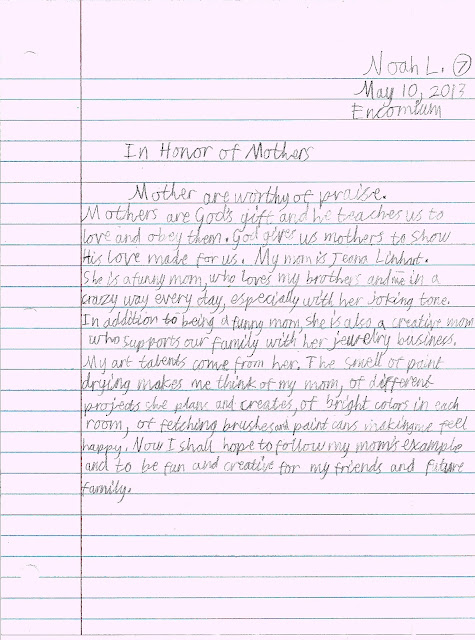 Noah L. 7
May 10, 2013
Encomium
In Honor of Mothers
Mother are worthy of praise.
Mothers are God's gift and he teaches us to
love and obey them. God gives us mothers to show
His love made for us. My mom is Jeana Linhart.
She is a funny mom, who loves my brothers and me in a
crazy way every day, especially with her joking tone.
In addition to being a funny mom, she is also a creative mom
who supports our family with her jewelry business.
My art talents come from her. The smell of paint
drying makes me think of my mom, of different
projects she plans and creates, of bright colors in each
room, of fetching brushes and paint cans making me feel
happy. Now I shall hope to follow my mom's example
and to be fun and creative for my friends and future
family.